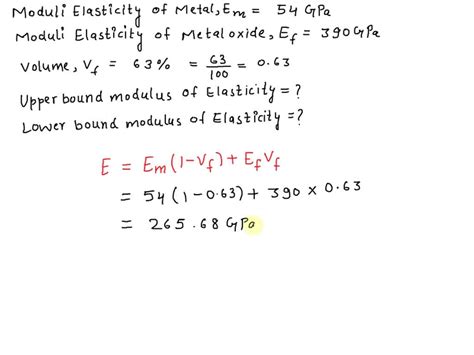 Moduli Elasticity of Metal, Em = 54 GPa
Moduli Elasticity of Metal oxide, Ef = 390 GPa
Volume, Vf = 63% = 63/100 = 0.63
Upper bound modulus of Elasticity = ?
Lower bound modulus of Elasticity = ?
E = Em (1-Vf) + Ef Vf
= 54 (1-0.63) + 390 × 0.63
= 265.68 GPa